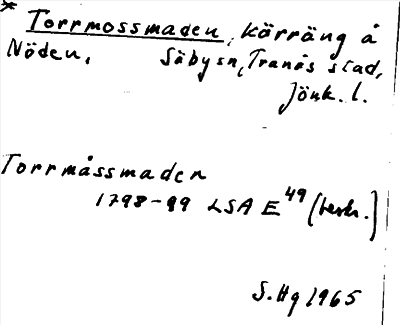 * Torrmossmaden, kärräng å
Nöden, Säbysn, Tranås stad,
Jönk. l.
Torrmåssmaden
1798-99 LSA E49 (beskr.)
S.Hg 1965